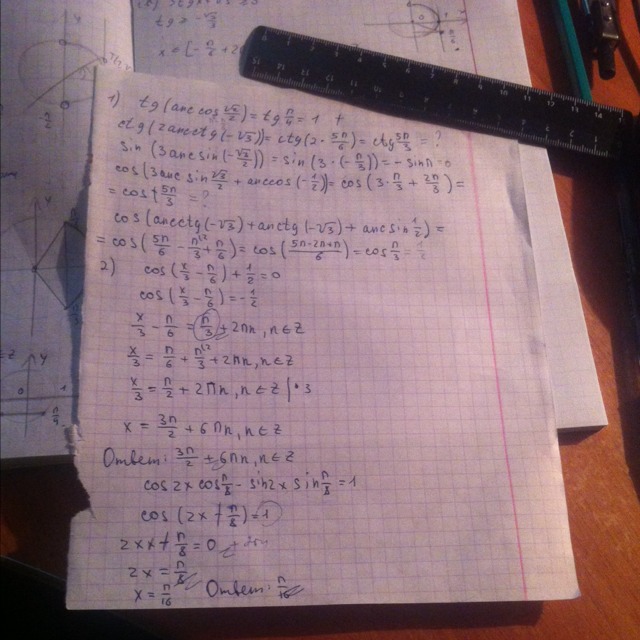 1) tg(arccos √2/2) = tg π/4 = 1 +
ctg(2arcctg(-√3)) = ctg(2 · 5π/6) = ctg 5π/3 = ?
sin(3arcsin(-√3/2)) = sin(3 · (-π/3)) = - sin π = 0
cos(3arcsin √3/2 + arccos(-1/2)) = cos(3 · π/3 + 2π/3) =
= cos 5π/3 = ?
cos(arcctg(-√3) + arctg(-√3) + arcsin 1/2) =
= cos(5π/6 - π/3 + π/6) = cos(5π-2π+π/6) = cos π/3 =
2) cos(x/3 - π/6) + 1/2 = 0
cos(x/3 - π/6) = -1/2
x/3 - π/6 = π/3 + 2πn, n∈Z
x/3 = π/6 + π/3 + 2πn, n∈Z
x/3 = π/2 + 2πn, n∈Z | · 3
x = 3π/2 + 6πn, n∈Z
Ответ: 3π/2 + 6πn, n∈Z
cos2x cos π/8 - sin2x sin π/8 = 1
cos(2x + π/8) = 1
2x + π/8 = 0
2x = π/8
x = π/16 Ответ: π/16